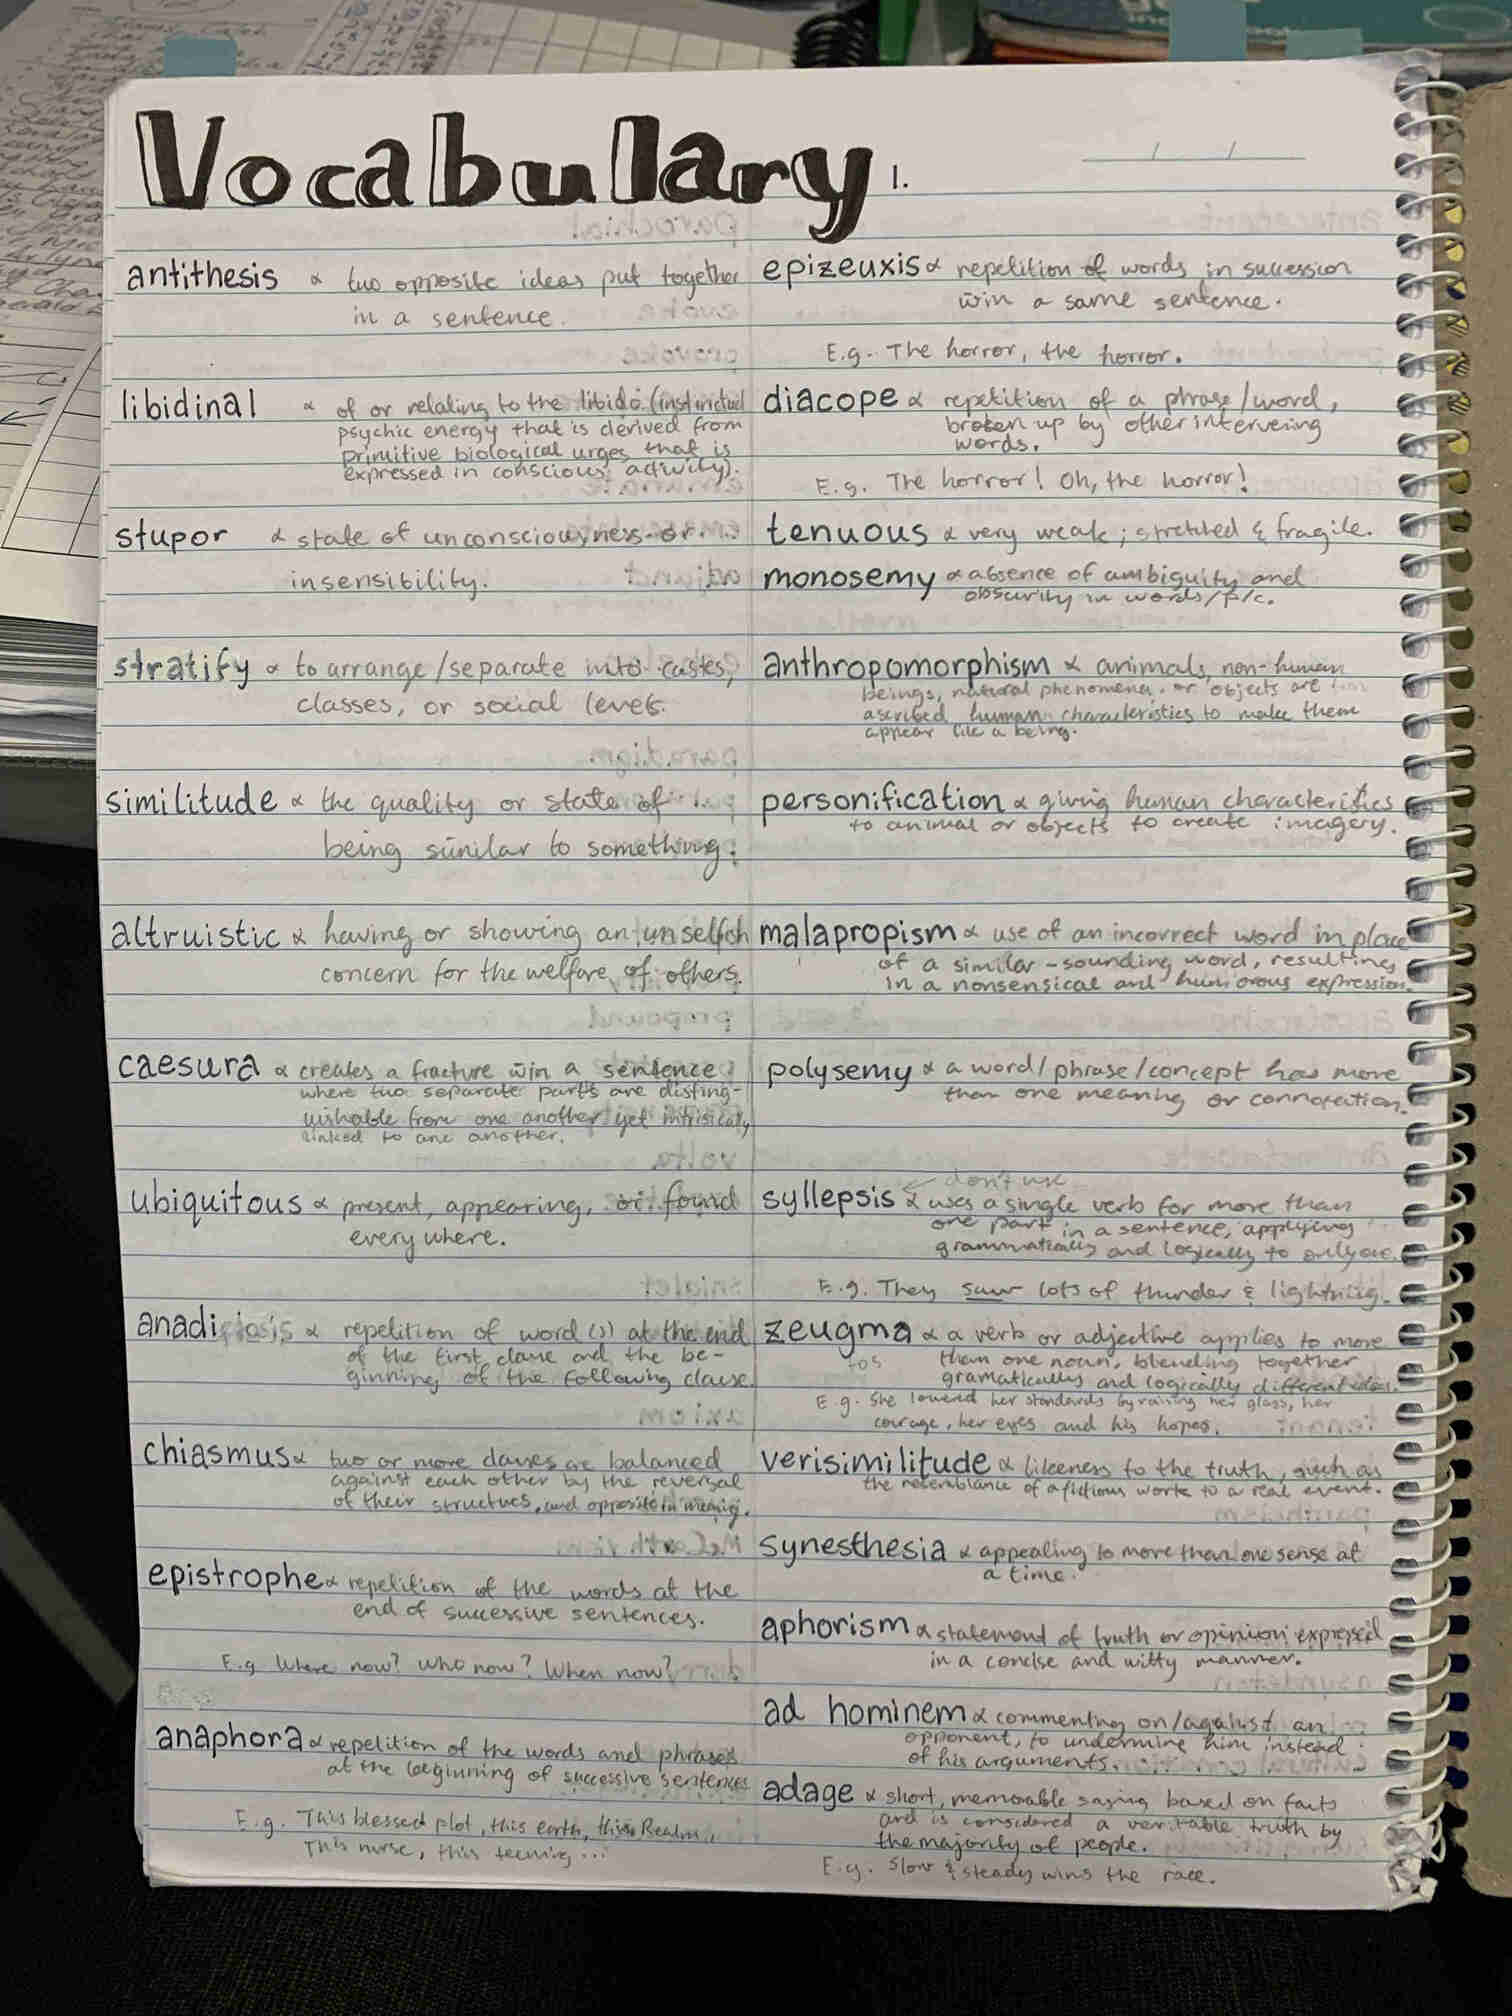 Vocabulary 1.
antithesis ∝ two opposite ideas put together
in a sentence.
libidinal ∝ of or relating to the libido (instinctual
psychic energy that is derived from
primitive biological urges that is
expressed in conscious activity).
stupor ∝ state of unconsciousness or
insensibility.
stratify ∝ to arrange/separate into castes,
classes, or social levels.
similitude ∝ the quality or state of
being similar to something.
altruistic ∝ having or showing an unselfish
concern for the welfare of others.
caesura ∝ creates a fracture w̄in a sentence
where two separate parts are disting-
uishable from one another yet intrisically
linked to one another.
ubiquitous ∝ present, appearing, or found
everywhere.
anadiplosis ∝ repetition of word(s) at the end
of the first clause and the be-
ginning of the following clause.
chiasmus ∝ two or more clauses are balanced
against each other by the reversal
of their structues, and opposite in meaning.
epistrophe ∝ repetition of the words at the
end of successive sentences.
E.g Where now? Who now? When now?
anaphora ∝ repetition of the words and phrases
at the beginning of successive sentences
E.g. This blessed plot, this earth, this Realm,
This nurse, this teeming...
epizeuxis ∝ repetition of words in succession
w̄in a same sentence.
E.g. The horror, the horror.
diacope ∝ repetition of a phrase/word,
broken up by other intervening
words.
E.g. The horror! Oh, the horror!
tenuous ∝ very weak; stretched & fragile.
monosemy ∝ absence of ambiguity and
obscurity in words/p/c.
anthropomorphism ∝ animals, non-human
beings, natural phenomena, or objects are
ascribed human characteristics to make them
appear like a being.
personification ∝ giving human characteristics
to animal or objects to create imagery.
malapropism ∝ use of an incorrect word in place
of a similar-sounding word, resulting
in a nonsensical and humorous expression.
polysemy ∝ a word/phrase/concept has more
than one meaning or connotation.
don't use
syllepsis ∝ uses a single verb for more than
one part in a sentence, applying
grammatically and logically to only one.
E.g. They saw lots of thunder & lightning.
zeugma ∝ a verb or adjective applies to more
than one noun, blending together
gramatically and logically different ideas.
E.g. She lowered her standards by raising her glass, her
courage, her eyes and his hopes.
verisimilitude ∝ likeness to the truth, such as
the resemblance of a fictious work to a real event.
synesthesia ∝ appealing to more than one sense at
a time.
aphorism ∝ statement of truth or opinion expressed
in a concise and witty manner.
ad hominem ∝ commenting on/against an
opponent, to undermine him instead
of his arguments.
adage ∝ short, memorable saying based on facts
and is considered a veritable truth by
the majority of people.
E.g. Slow & steady wins the race.